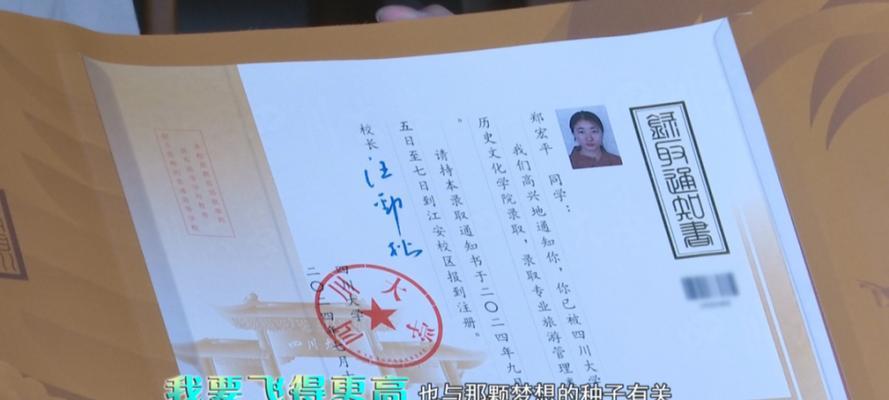 录取通知书
郑宏平 同学：
我们高兴地通知你，你已被四川大学
历史文化学院录取，录取专业旅游管理
。
请持本录取通知书于二〇二四年九月
五日至七日到江安校区报到注册。
校长 汪劲松
四川大学
二〇二四年七月
四川大学
我要飞得更高
也与那颗梦想的种子有关